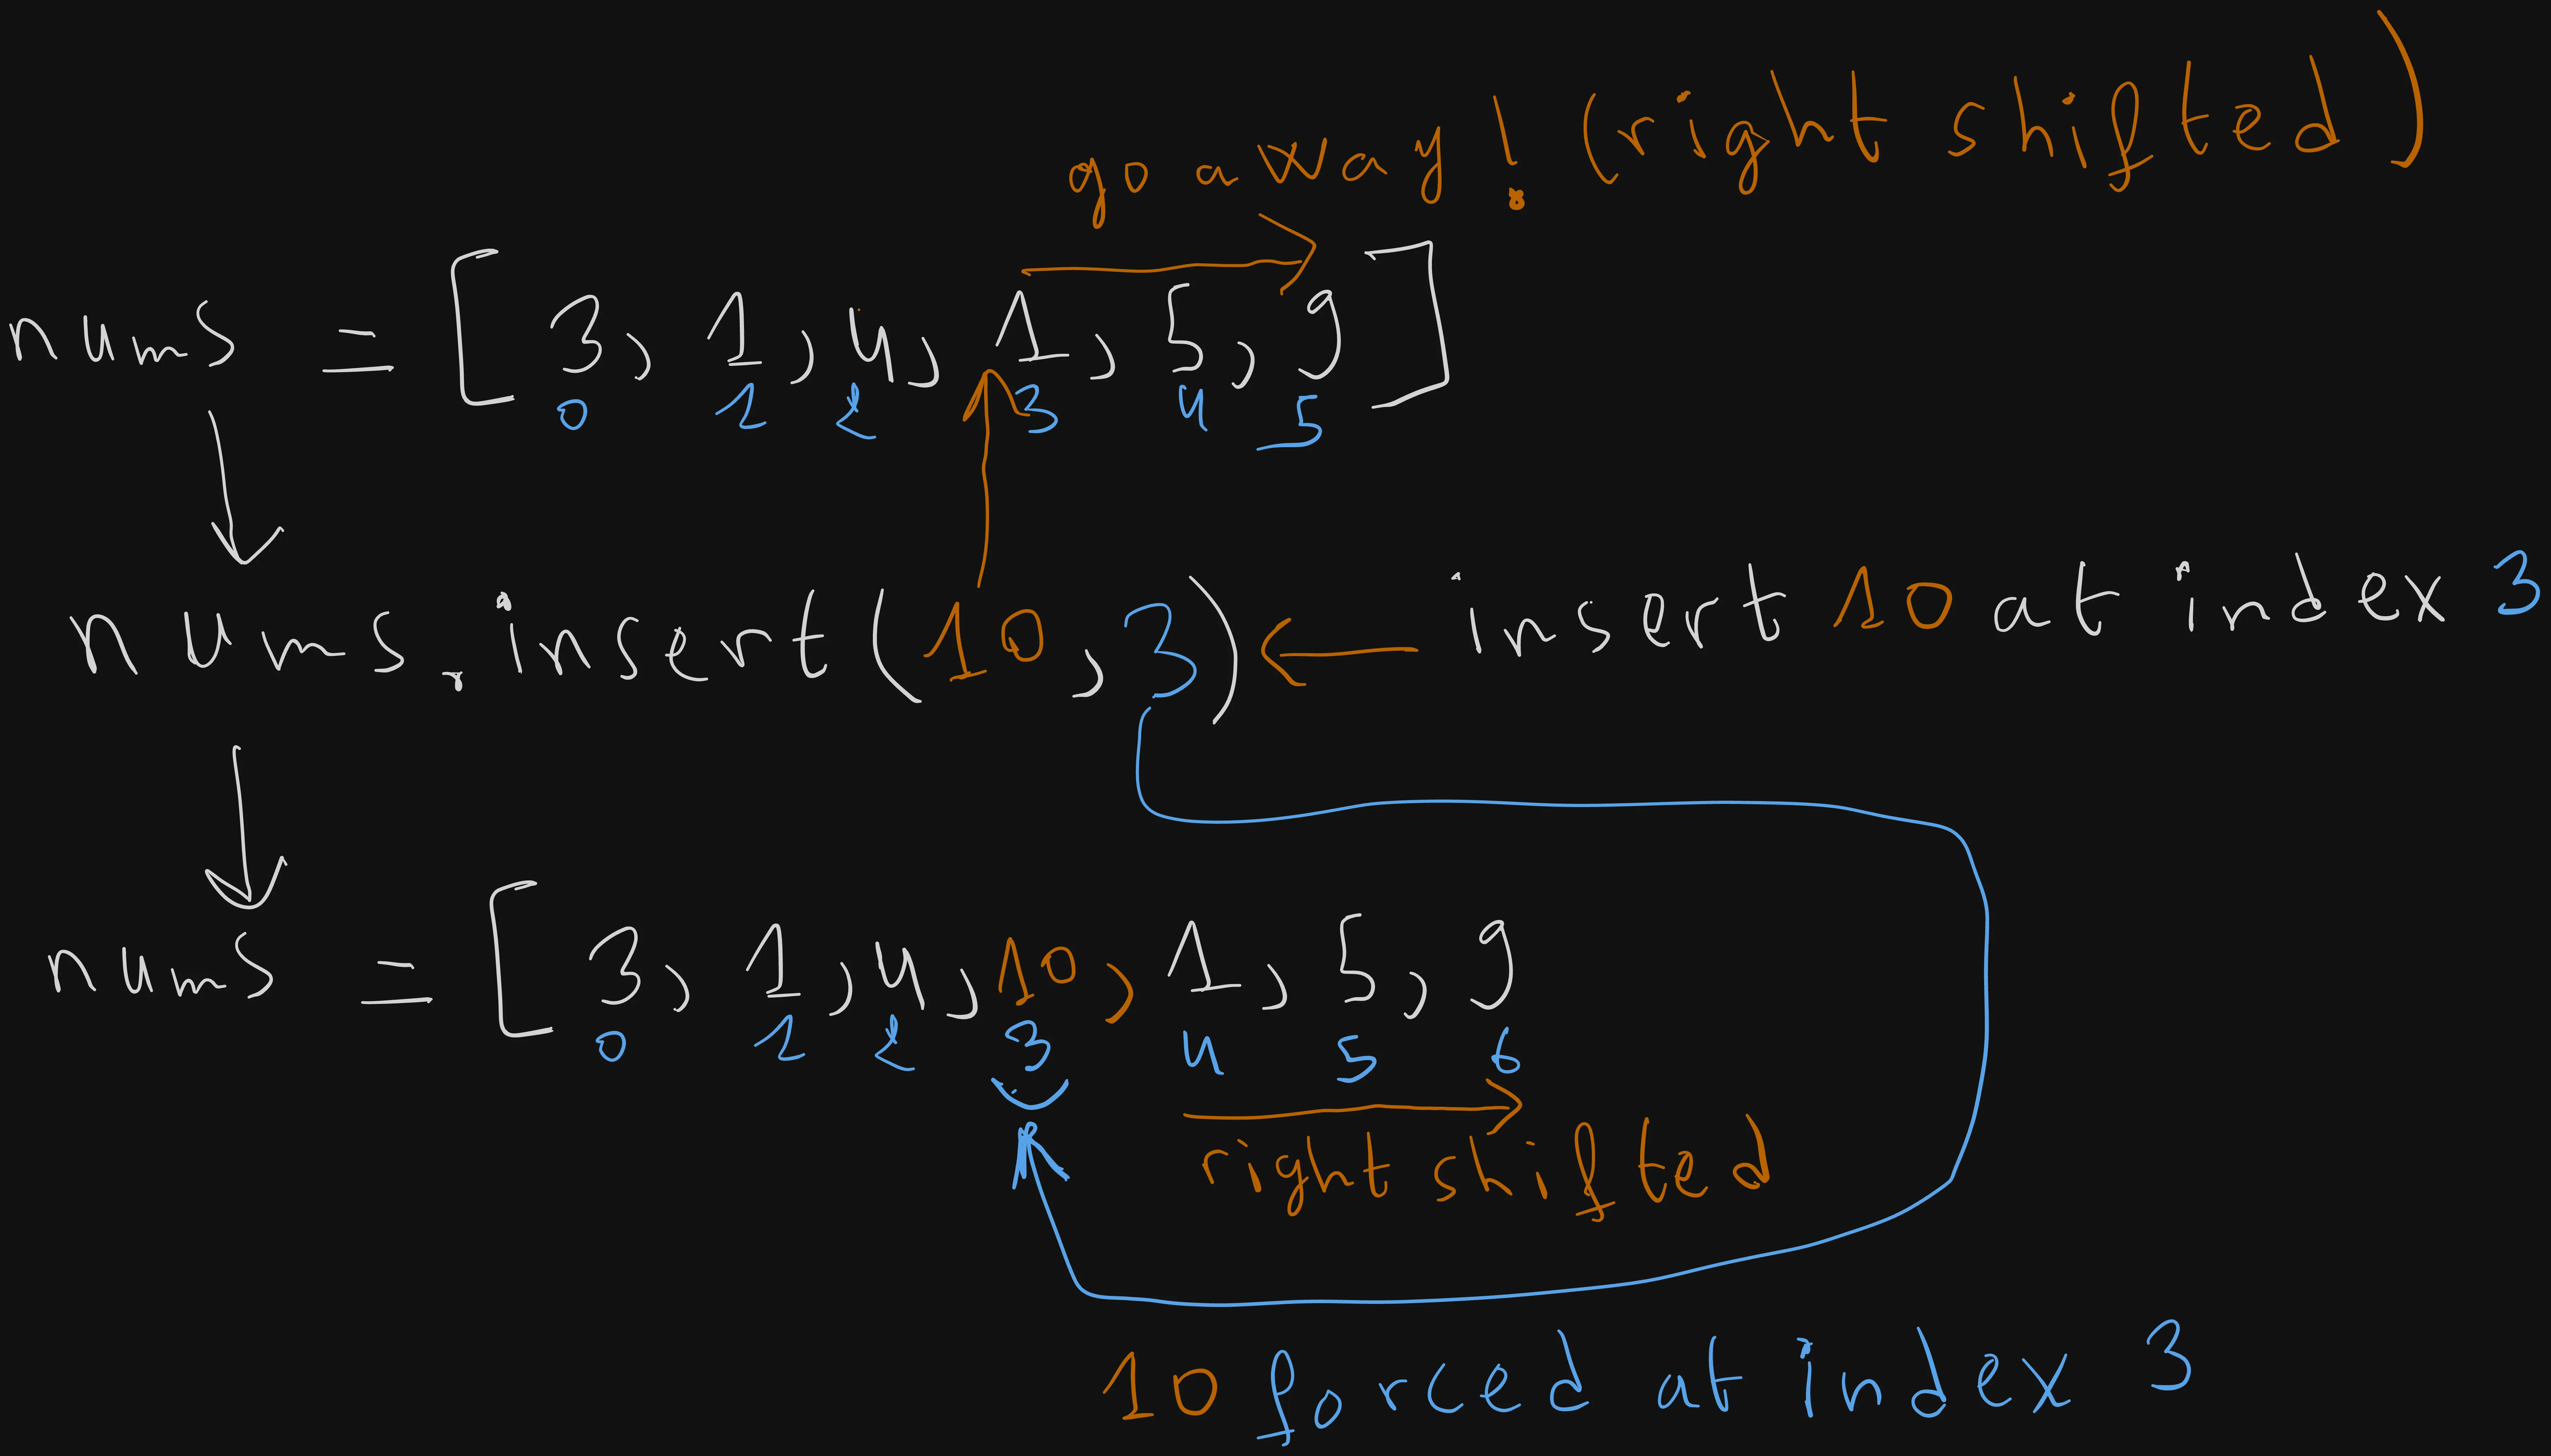 go away! (right shifted)
nums = [3, 1, 4, 1, 5, 9]
0 1 2 3 4 5
nums.insert(10, 3) ← insert 10 at index 3
nums = [3, 1, 4, 10, 1, 5, 9
0 1 2 3 4 5 6
right shifted
10 forced at index 3